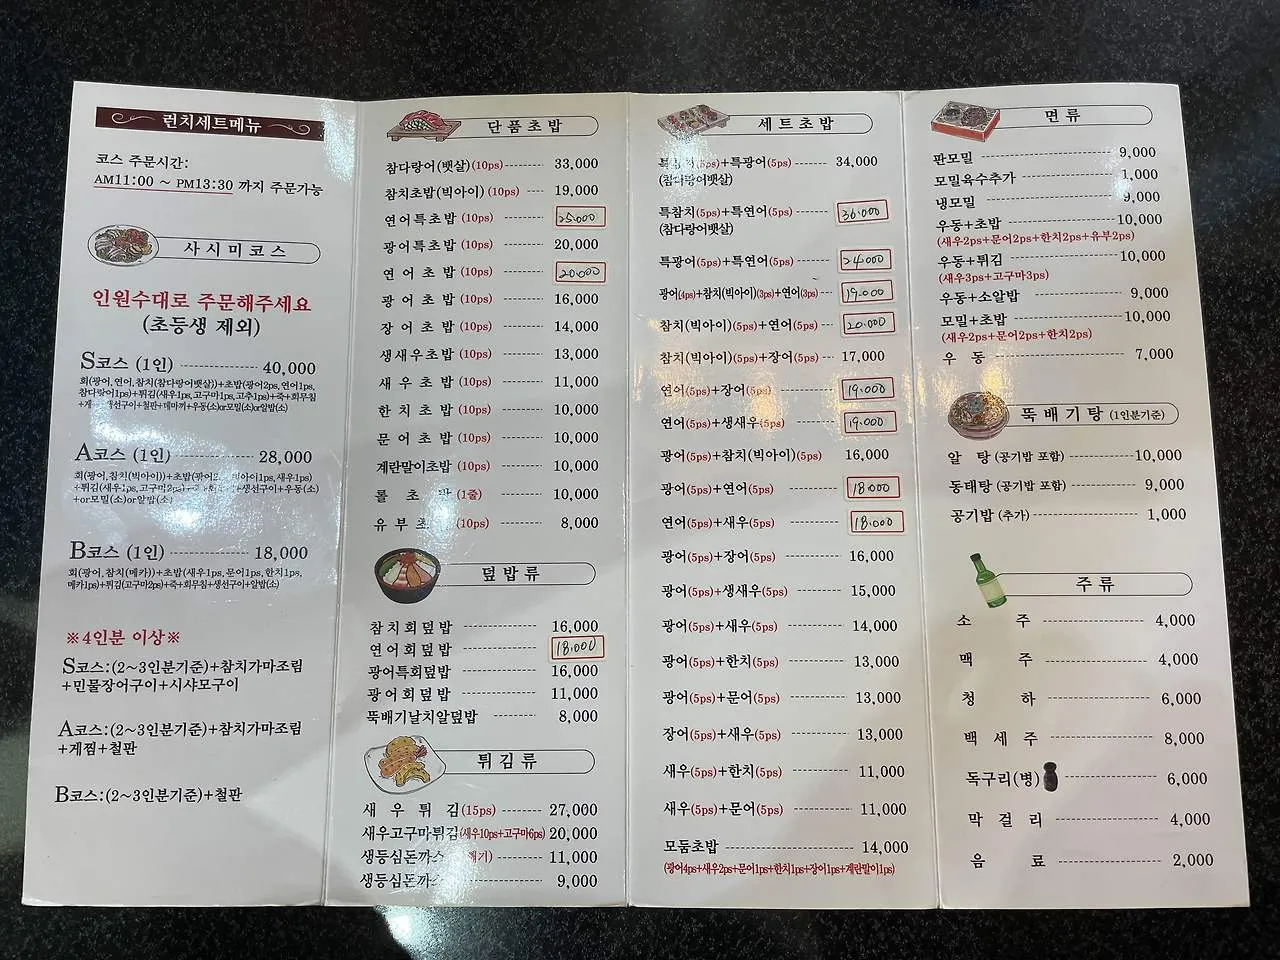 런치세트메뉴
코스 주문시간:
AM11:00 ~ PM13:30 까지 주문가능
사시미코스
인원수대로 주문해주세요
(초등생 제외)
S코스 (1인) 40,000
회(광어, 연어, 참치(참다랑어뱃살))+초밥(광어2ps, 연어1ps,
참다랑어1ps)+튀김(새우1ps, 고구마1ps, 고추1ps)+죽+회무침
선구이+철판+데마끼+우동(소)or모밀(소)or알밥(소)
A코스 (1인) 28,000
회(광어, 참치(빅아이))+초밥(광어2 빅아이1ps, 새우1ps)
+튀김(새우1ps, 고구마2ps) +생선구이+우동(소)
+or모밀(소)or알밥(소)
B코스 (1인) 18,000
회(광어, 참치(메카))+초밥(새우1ps, 문어1ps, 한치1ps,
메카1ps)+튀김(고구마2ps)+죽+회무침+생선구이+알밥(소)
※4인분 이상※
S코스:(2~3인분기준)+참치가마조림
+민물장어구이+시샤모구이
A코스:(2~3인분기준)+참치가마조림
+게찜+철판
B코스:(2~3인분기준)+철판
단품초밥
참다랑어(뱃살)(10ps) 33,000
참치초밥(빅아이)(10ps) 19,000
연어특초밥(10ps) 25.000
광어특초밥(10ps) 20,000
연어초밥(10ps) 20.000
광어초밥(10ps) 16,000
장어초밥(10ps) 14,000
생새우초밥(10ps) 13,000
새우초밥(10ps) 11,000
한치초밥(10ps) 10,000
문어초밥(10ps) 10,000
계란말이초밥(10ps) 10,000
롤초 (1줄) 10,000
유부초 (10ps) 8,000
덮밥류
참치회덮밥 16,000
연어회덮밥 18.000
광어특회덮밥 16,000
광어회덮밥 11,000
뚝배기날치알덮밥 8,000
튀김류
새우튀김(15ps) 27,000
새우고구마튀김(새우10ps+고구마6ps) 20,000
생등심돈까스 11,000
생등심돈까스 9,000
세트초밥
특참치(5ps)+특광어(5ps) 34,000
(참다랑어뱃살)
특참치(5ps)+특연어(5ps) 36.000
(참다랑어뱃살)
특광어(5ps)+특연어(5ps) 24.000
광어(4ps)+참치(빅아이)(3ps)+연어(3ps) 19.000
참치(빅아이)(5ps)+연어(5ps) 20.000
참치(빅아이)(5ps)+장어(5ps) 17,000
연어(5ps)+장어(5ps) 19.000
연어(5ps)+생새우(5ps) 19.000
광어(5ps)+참치(빅아이)(5ps) 16,000
광어(5ps)+연어(5ps) 18.000
연어(5ps)+새우(5ps) 18.000
광어(5ps)+장어(5ps) 16,000
광어(5ps)+생새우(5ps) 15,000
광어(5ps)+새우(5ps) 14,000
광어(5ps)+한치(5ps) 13,000
광어(5ps)+문어(5ps) 13,000
장어(5ps)+새우(5ps) 13,000
새우(5ps)+한치(5ps) 11,000
새우(5ps)+문어(5ps) 11,000
모둠초밥 14,000
(광어4ps+새우2ps+문어1ps+한치1ps+장어1ps+계란말이1ps)
면류
판모밀 9,000
모밀육수추가 1,000
냉모밀 9,000
우동+초밥 10,000
(새우2ps+문어2ps+한치2ps+유부2ps)
우동+튀김 10,000
(새우3ps+고구마3ps)
우동+소알밥 9,000
모밀+초밥 10,000
(새우2ps+문어2ps+한치2ps)
우동 7,000
뚝배기탕 (1인분기준)
알탕(공기밥 포함) 10,000
동태탕(공기밥 포함) 9,000
공기밥(추가) 1,000
주류
소주 4,000
맥주 4,000
청하 6,000
백세주 8,000
독구리(병) 6,000
막걸리 4,000
음료 2,000